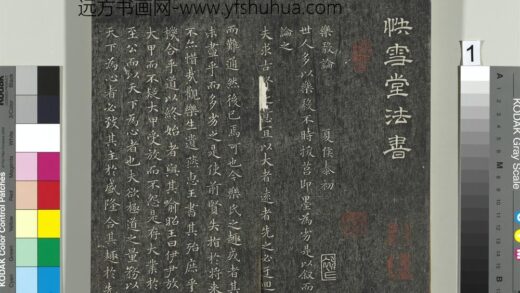 远方书画网-www.yfshuhua.com
快雪堂法書
樂毅論 夏侯泰初
世人多以樂毅不時拔莒即墨為劣是以叙而
論之
夫求古賢意宜以大者遠者先之必迂迴
而難通然後已焉可也今樂氏之趣或者其
未盡乎而多劣之是使前賢失指於將來
不亦惜哉觀樂生遺燕惠王書其殆庶乎
機合乎道以終始者與其喻昭王曰伊尹放
大甲而不疑大甲受放而不怨是存大業於
至公而以天下為心者也夫欲極道之量務以
天下為心者必致其主於盛隆合其趣於先
1
KODAK Gray Scale
KODAK Color Control Patches
Black
3/Color
White